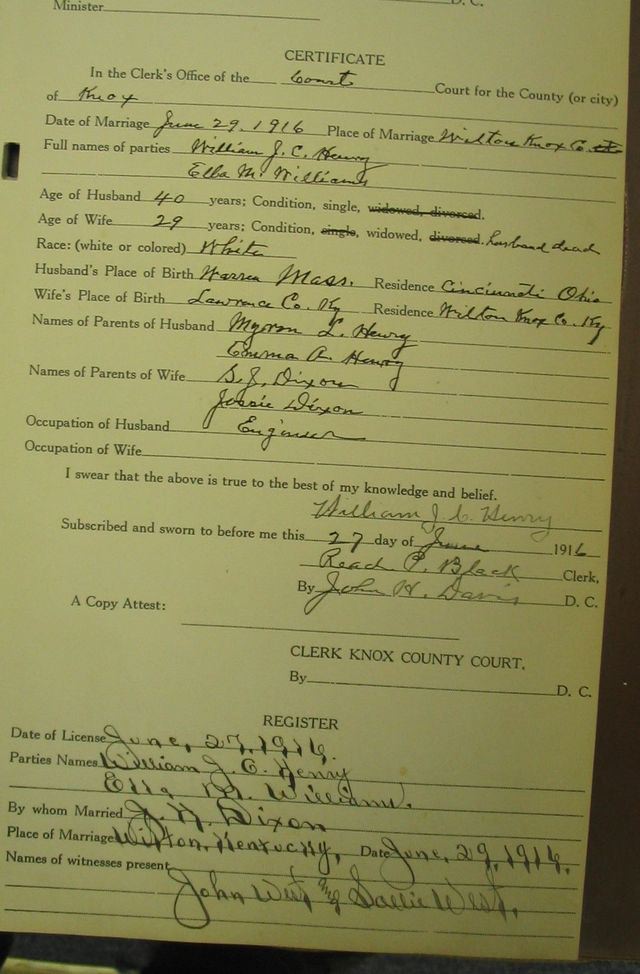 Minister
D. C.
CERTIFICATE
In the Clerk's Office of the County Court for the County (or city)
of Knox
Date of Marriage June 29, 1916 Place of Marriage Wilton Knox Co.
Full names of parties William J. C. Henry
Ella M. Williams
Age of Husband 40 years; Condition, single, widowed, divorced.
Age of Wife 29 years; Condition, single, widowed, divorced. husband dead
Race: (white or colored) White
Husband's Place of Birth Warren Mass. Residence Cincinnati Ohio
Wife's Place of Birth Lawrence Co. Ky Residence Wilton Knox Co. Ky
Names of Parents of Husband Myron L. Henry
Emma A. Henry
Names of Parents of Wife S. J. Dixon
Jossie Dixon
Occupation of Husband Engineer
Occupation of Wife
I swear that the above is true to the best of my knowledge and belief.
William J. C. Henry
Subscribed and sworn to before me this 27 day of June 1916
Read P. Black Clerk,
By John H. Davis D. C.
A Copy Attest:
CLERK KNOX COUNTY COURT.
By D. C.
REGISTER
Date of License June, 27, 1916.
Parties Names William J. C. Henry
Ella M. Williams.
By whom Married J. N. Dixon
Place of Marriage Wilton, Kentucky, Date June, 29, 1916.
Names of witnesses present
John West and Sallie West.